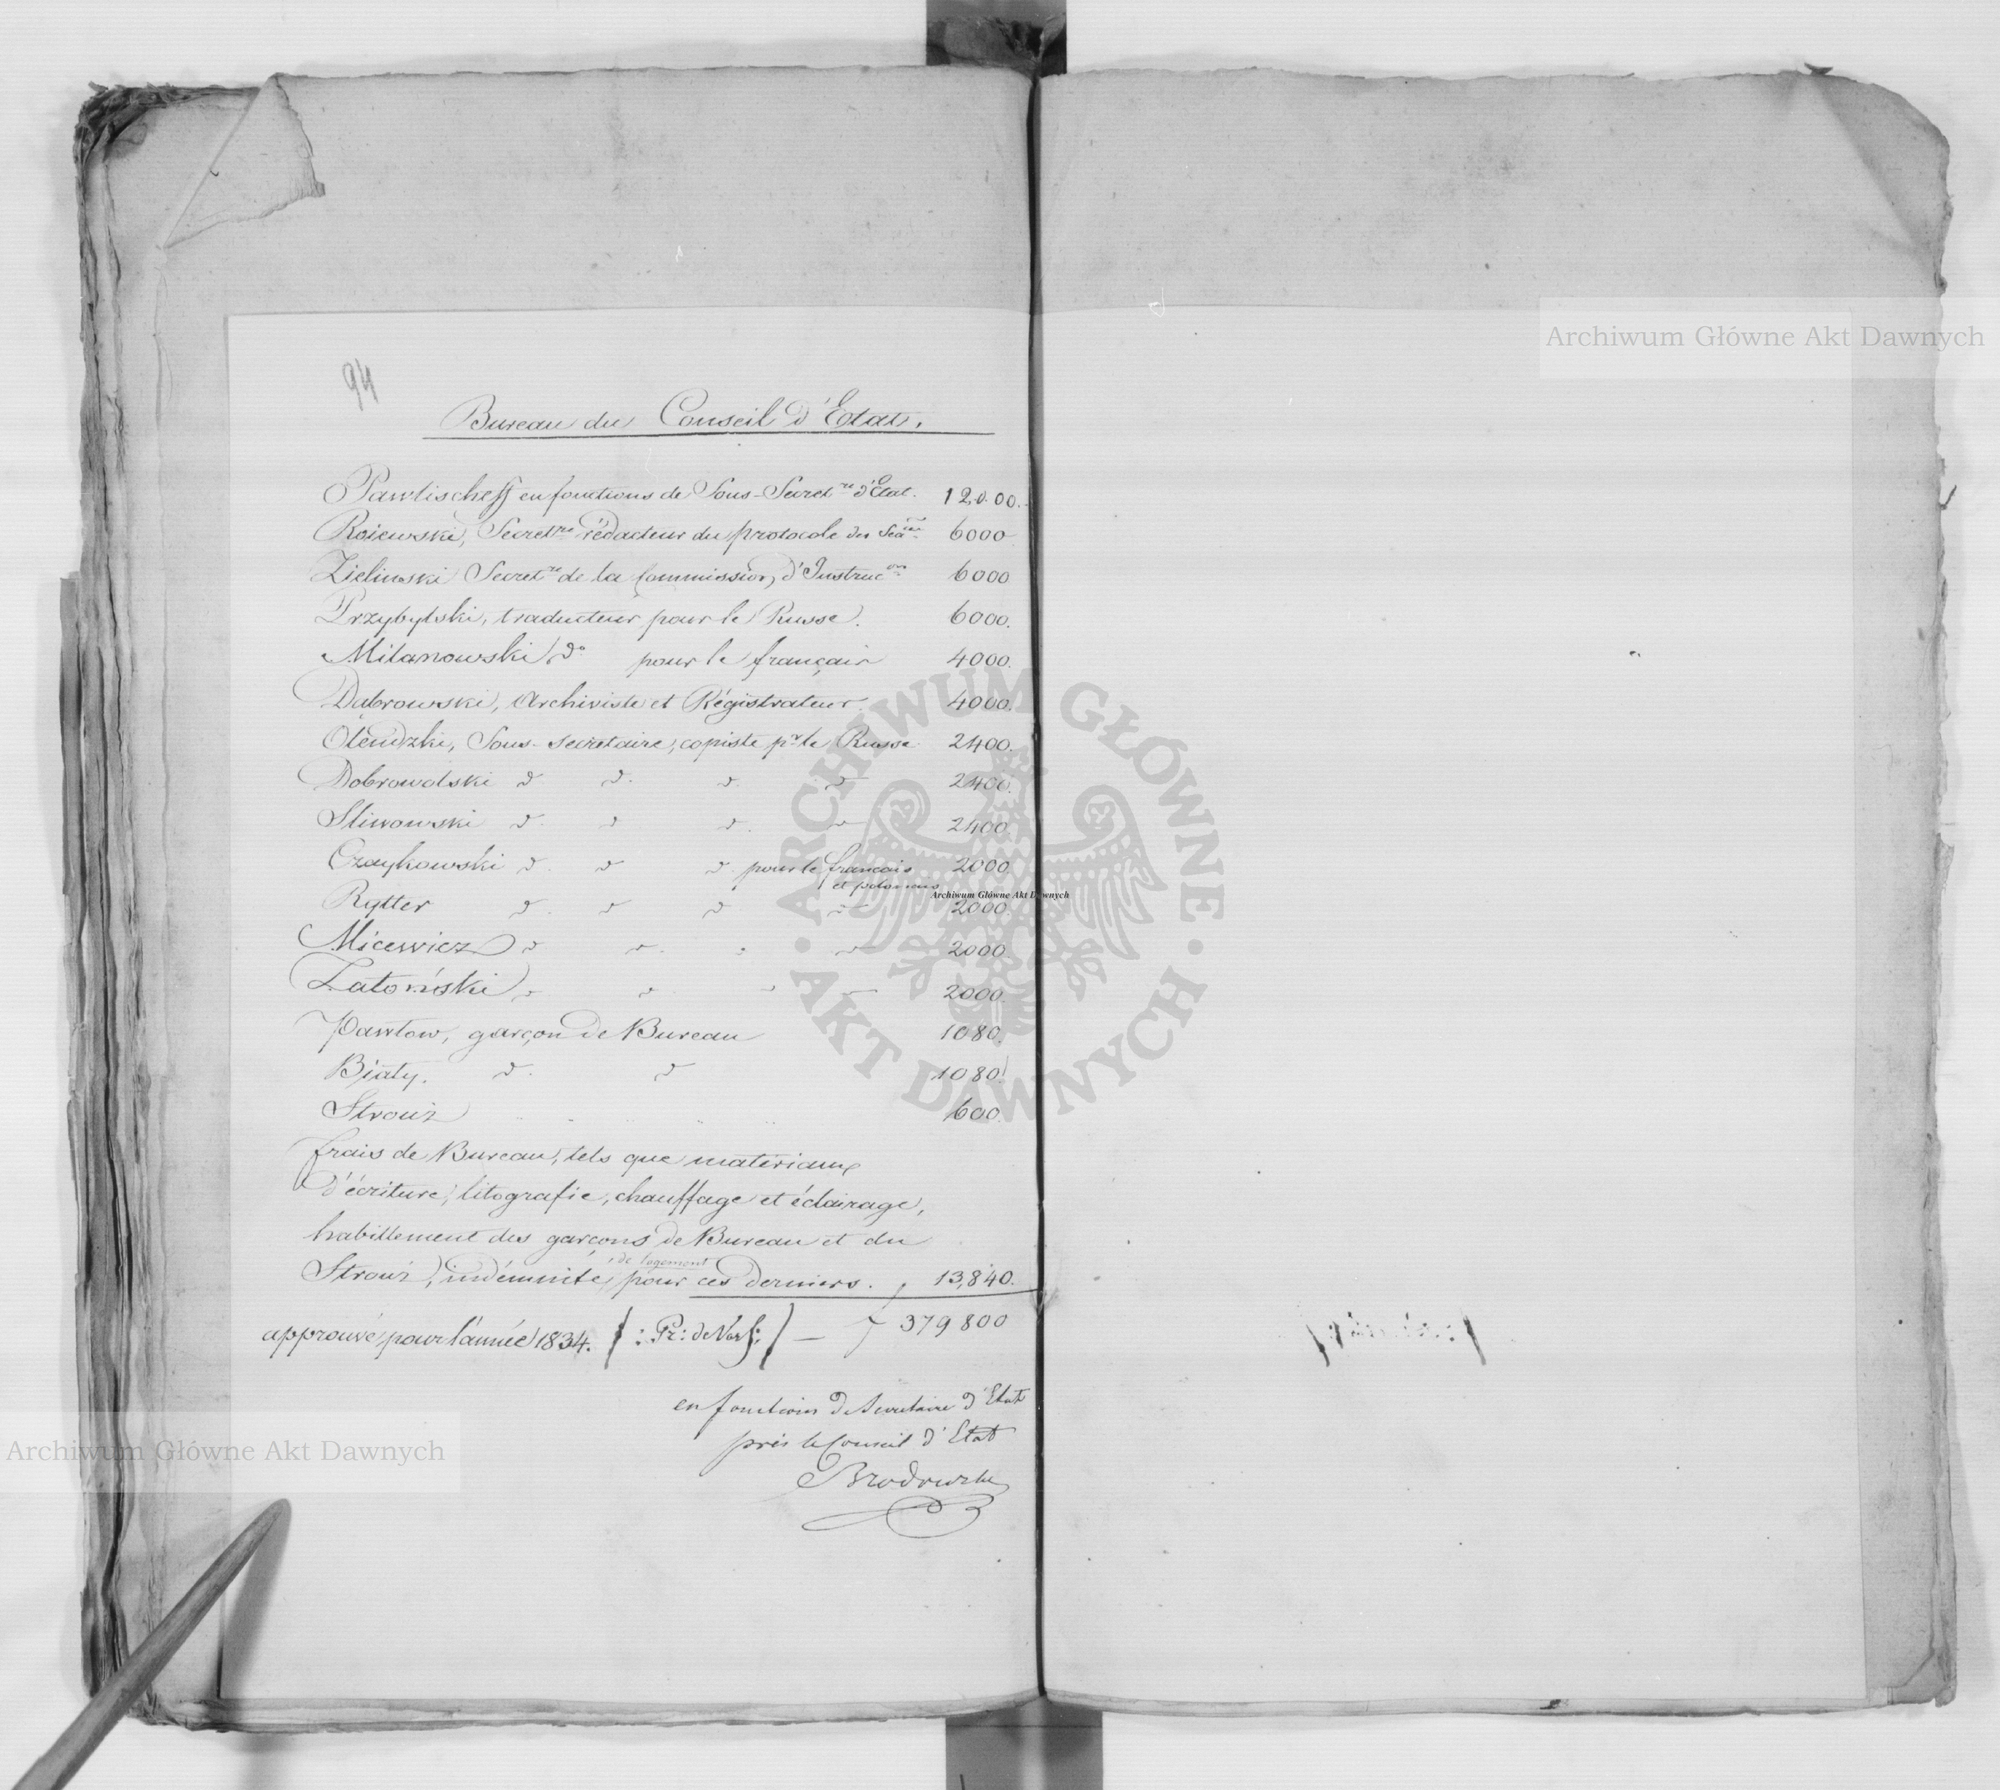 94
Bureau du Conseil d'Etat.
Pawlischeff en fonctions de Sous-Secret.re d'Etat. 12,000.
Rojewski, Secret.re rédacteur du protocole des 6000
Zielinski Secret.re de la Commission d'Instruc.on 6000
Przybylski, traducteur pour le Russe. 6000.
Milanowski, do pour le français 4000.
Dąbrowski, Archiviste et Régistrateur. 4000.
Olendzki, Sous-secretaire, copiste pr le Russe 2400.
Dobrowolski d d. d. d 2400.
Sliwowski d. d d. 2400.
Czaykowski d. d d pour le francais 2000
et polonais
Rytter d. d d 2000.
Micewicz d d. 2000
Zatoński d d 2000
Pawłow, garçon de Bureau 1080.
Biały. d. d 1080.
Stróuż 600.
frais de Bureau, tels que matériaux
d'écriture, litografie, chauffage et éclairage,
habillement des garcons de Bureau et du
Stróuż, indémnité de logement pour ces derniers. 13,840.
approuvé pour l'année 1834. (: Pr: de Vars: ) — f 379 800
en fonctions de Secretaire d'Etat
près le Conseil d'Etat
Brodowski
Archiwum Główne Akt Dawnych
Archiwum Główne Akt Dawnych
Archiwum Główne Akt Dawnych
ARCHIWUM GŁÓWNE · AKT DAWNYCH ·